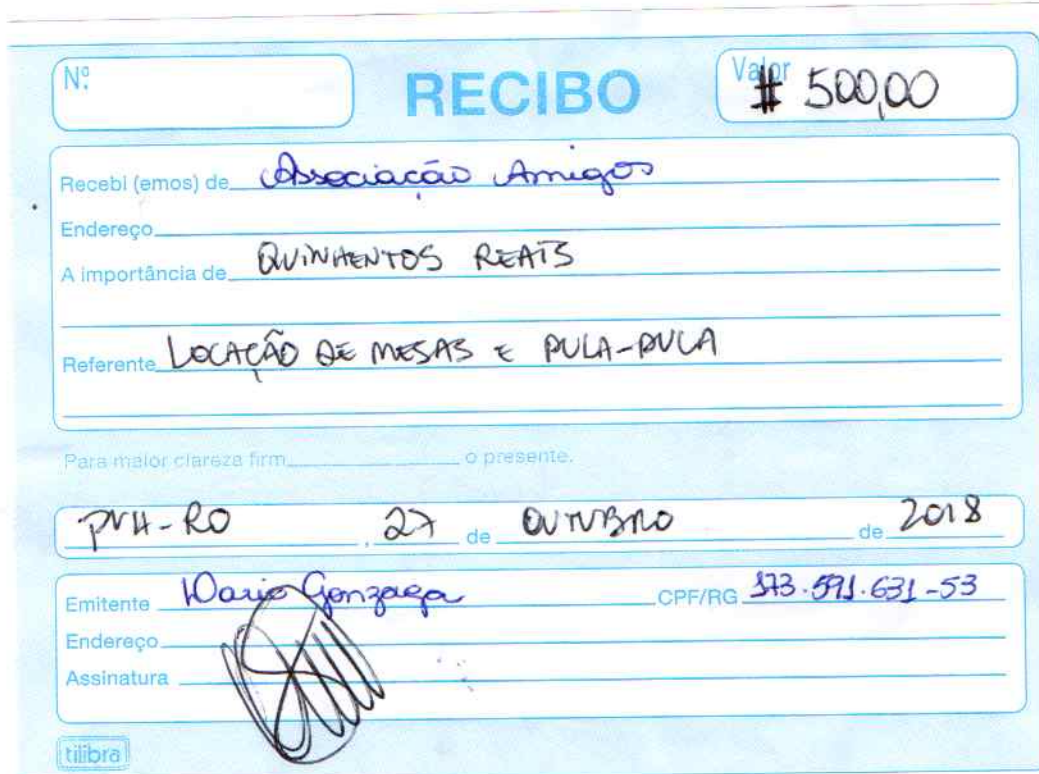 Nº
RECIBO
Valor
# 500,00
Recebi (emos) de Associação Amigos
Endereço
A importância de QUINHENTOS REAIS
Referente LOCAÇÃO DE MESAS E PULA-PULA
Para maior clareza firm o presente.
PVH-RO , 27 de OUTUBRO de 2018
Emitente Dario Gonzaga CPF/RG 173.591.631-53
Endereço
Assinatura
tilibra